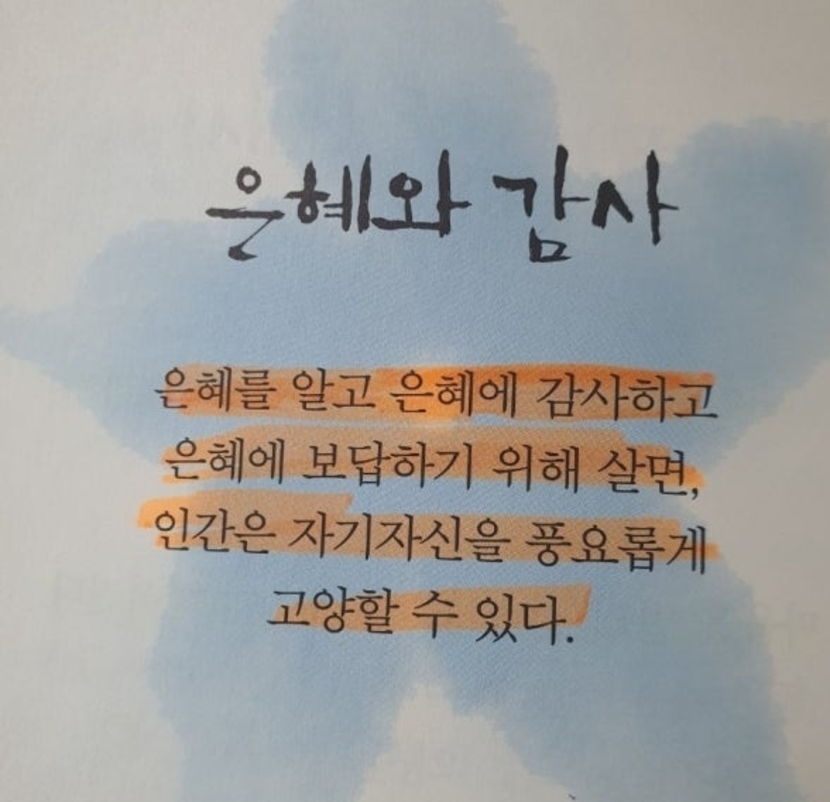 은혜와 감사
은혜를 알고 은혜에 감사하고
은혜에 보답하기 위해 살면,
인간은 자기자신을 풍요롭게
고양할 수 있다.